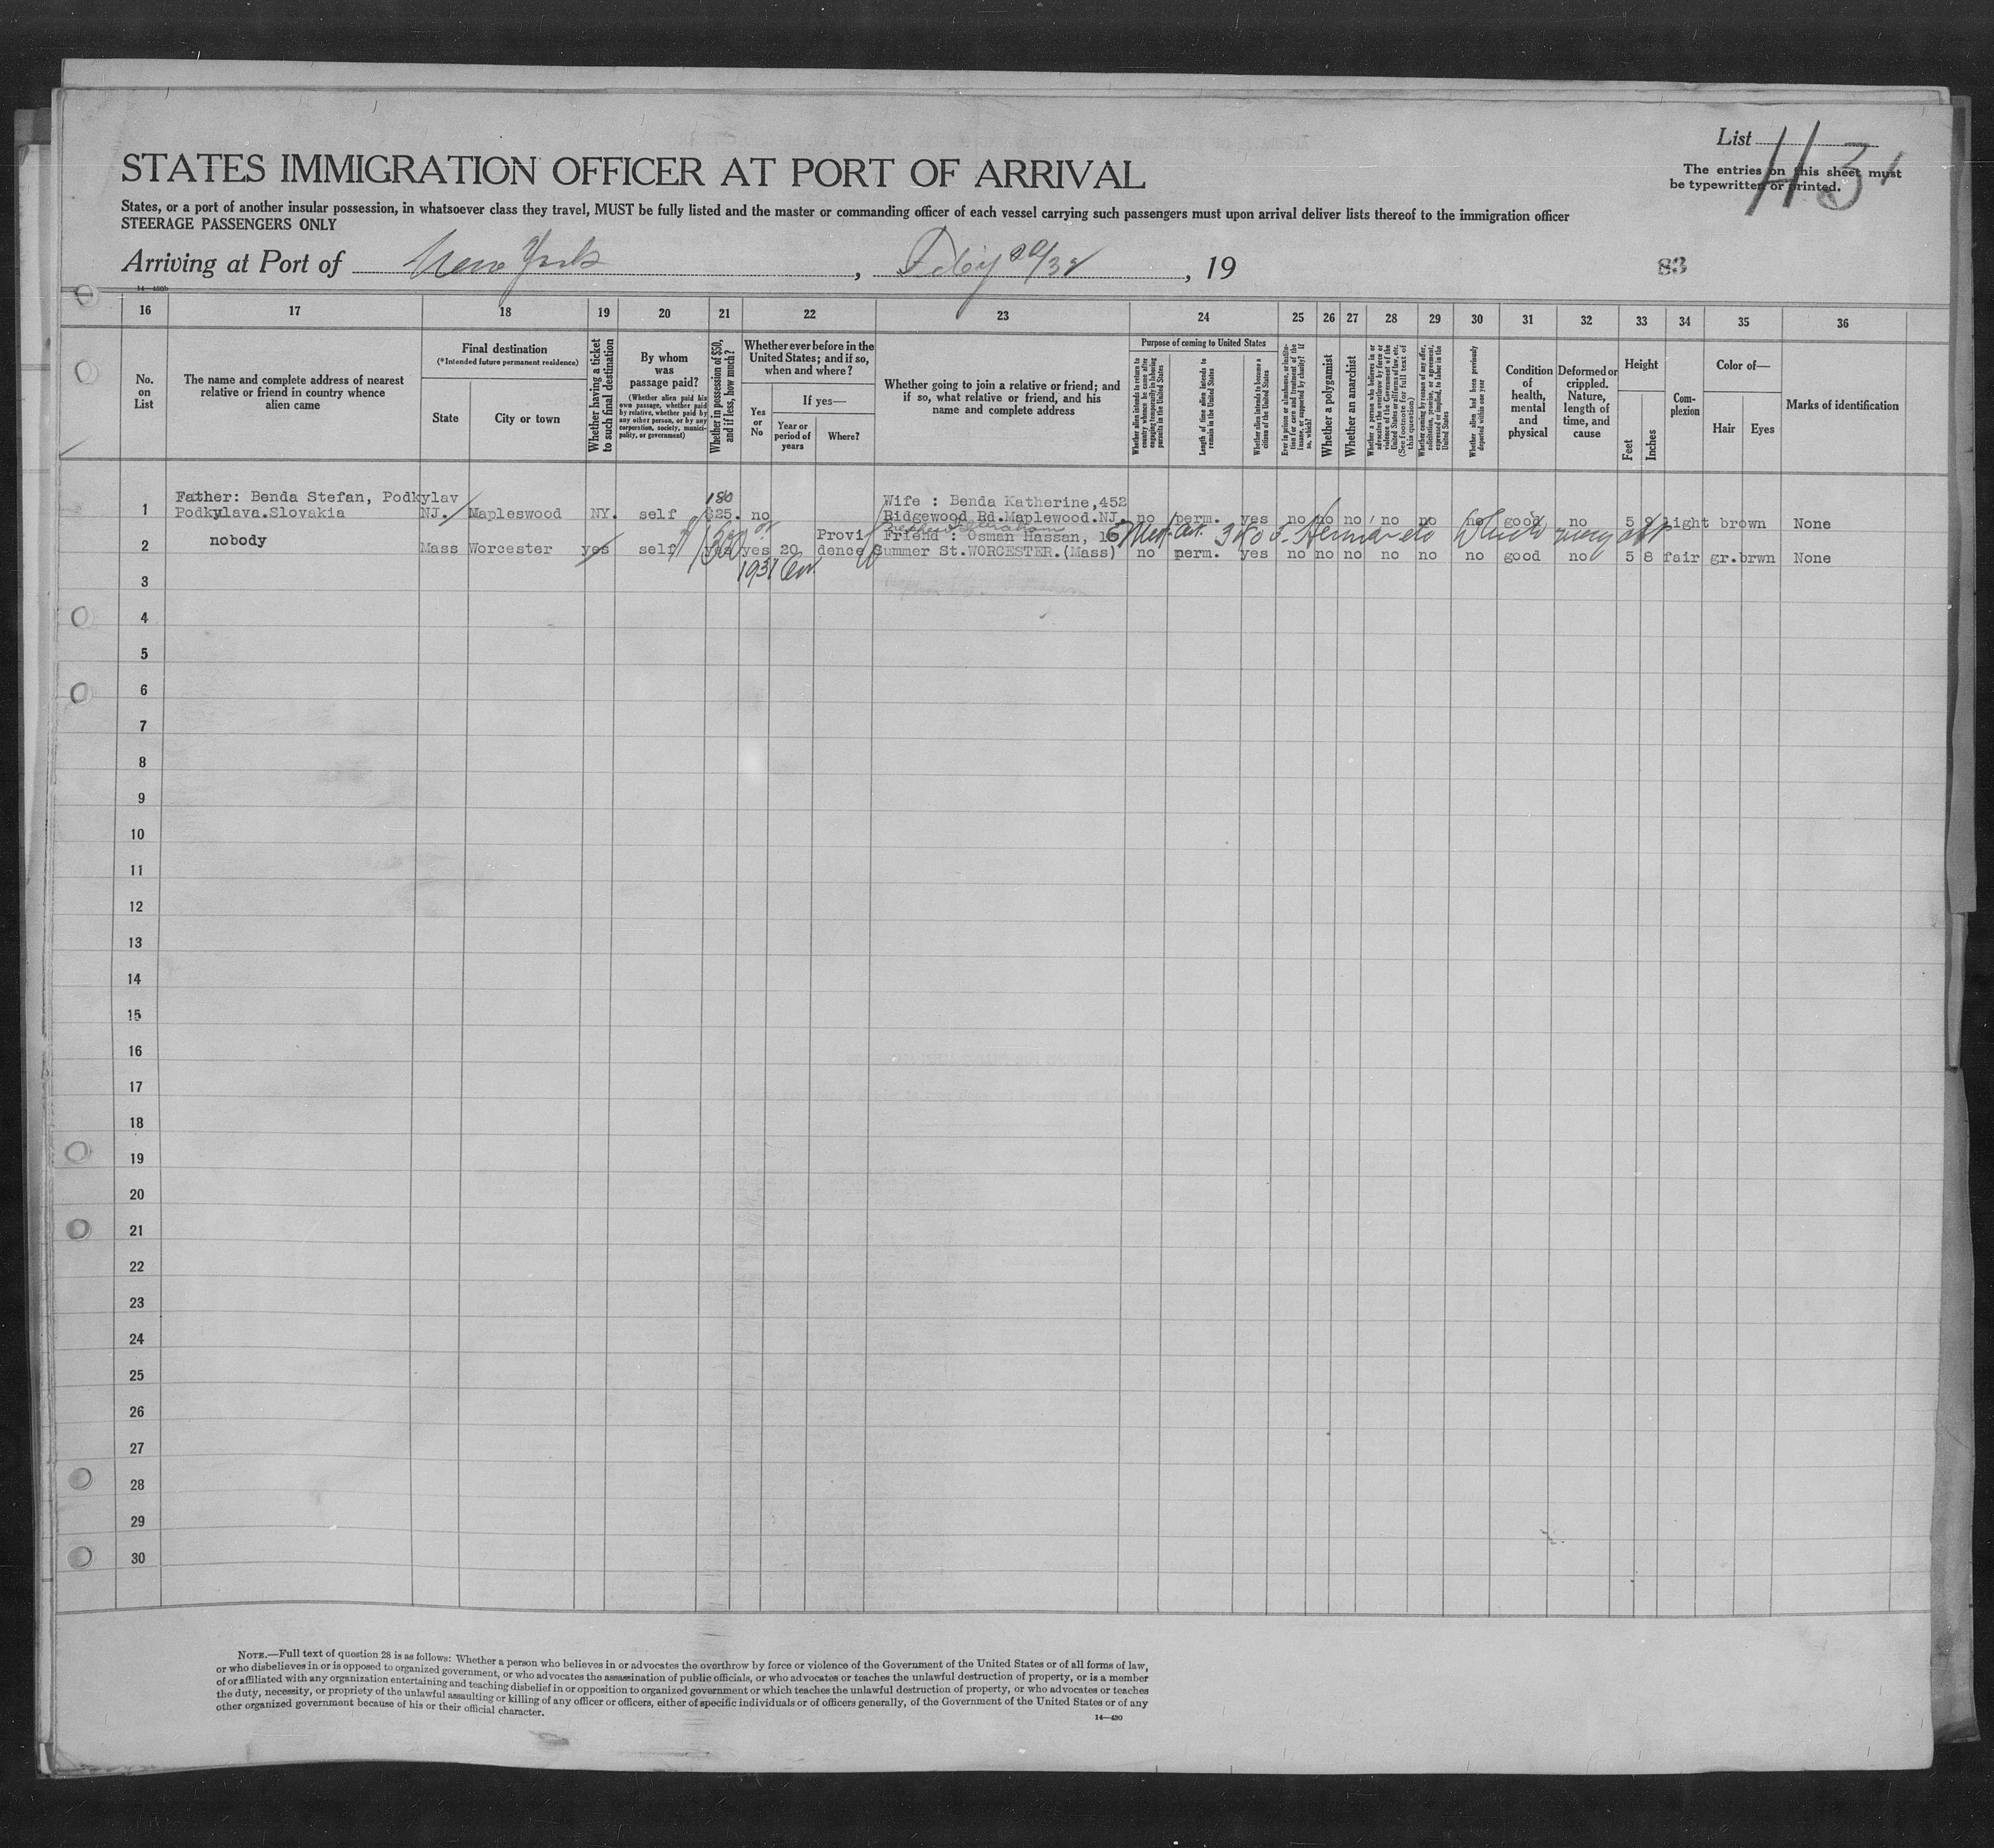 List
H 3
The entries on this sheet must
be typewritten or printed.
STATES IMMIGRATION OFFICER AT PORT OF ARRIVAL
States, or a port of another insular possession, in whatsoever class they travel, MUST be fully listed and the master or commanding officer of each vessel carrying such passengers must upon arrival deliver lists thereof to the immigration officer
STEERAGE PASSENGERS ONLY
Arriving at Port of New York, , 19
83
14—430b
16 17 18 19 20 21 22 23 24 25 26 27 28 29 30 31 32 33 34 35 36
No. on List
The name and complete address of nearest relative or friend in country whence alien came
Final destination
(*Intended future permanent residence)
State
City or town
Whether having a ticket to such final destination
By whom was passage paid?
(Whether alien paid his own passage, whether paid by relative, whether paid by any other person, or by any corporation, society, municipality, or government)
Whether in possession of $50, and if less, how much?
Whether ever before in the United States; and if so, when and where?
Yes or No
If yes—
Year or period of years
Where?
Whether going to join a relative or friend; and if so, what relative or friend, and his name and complete address
Purpose of coming to United States
Whether alien intends to return to country whence he came after engaging temporarily in laboring pursuits in the United States
Length of time alien intends to remain in the United States
Whether alien intends to become a citizen of the United States
Ever in prison or almshouse, or institution for care and treatment of the insane, or supported by charity? If so, which?
Whether a polygamist
Whether an anarchist
Whether a person who believes in or advocates the overthrow by force or violence of the Government of the United States or all forms of law, etc. (See footnote for full text of this question)
Whether coming by reason of any offer, solicitation, promise, or agreement, expressed or implied, to labor in the United States
Whether alien had been previously deported within one year
Condition of health, mental and physical
Deformed or crippled. Nature, length of time, and cause
Height
Feet
Inches
Complexion
Color of—
Hair
Eyes
Marks of identification
180
Father: Benda Stefan, Podkylav Wife : Benda Katherine,452
1 Podkylava.Slovakia NJ. Mapleswood NY. self $25. no Ridgewood Rd.Maplewood.NJ. no perm. yes no no no no no no good no 5 light brown None
nobody Provi Friend : Osman Hassan, 16
2 Mass Worcester yes self yes yes 20 dence Summer St.WORCESTER.(Mass) no perm. yes no no no no no no good no 5 8 fair gr. brwn None
1931
3
4
5
6
7
8
9
10
11
12
13
14
15
16
17
18
19
20
21
22
23
24
25
26
27
28
29
30
NOTE.—Full text of question 28 is as follows: Whether a person who believes in or advocates the overthrow by force or violence of the Government of the United States or of all forms of law,
or who disbelieves in or is opposed to organized government, or who advocates the assassination of public officials, or who advocates or teaches the unlawful destruction of property, or is a member
of or affiliated with any organization entertaining and teaching disbelief in or opposition to organized government or which teaches the unlawful destruction of property, or who advocates or teaches
the duty, necessity, or propriety of the unlawful assaulting or killing of any officer or officers, either of specific individuals or of officers generally, of the Government of the United States or of any
other organized government because of his or their official character.
14—430